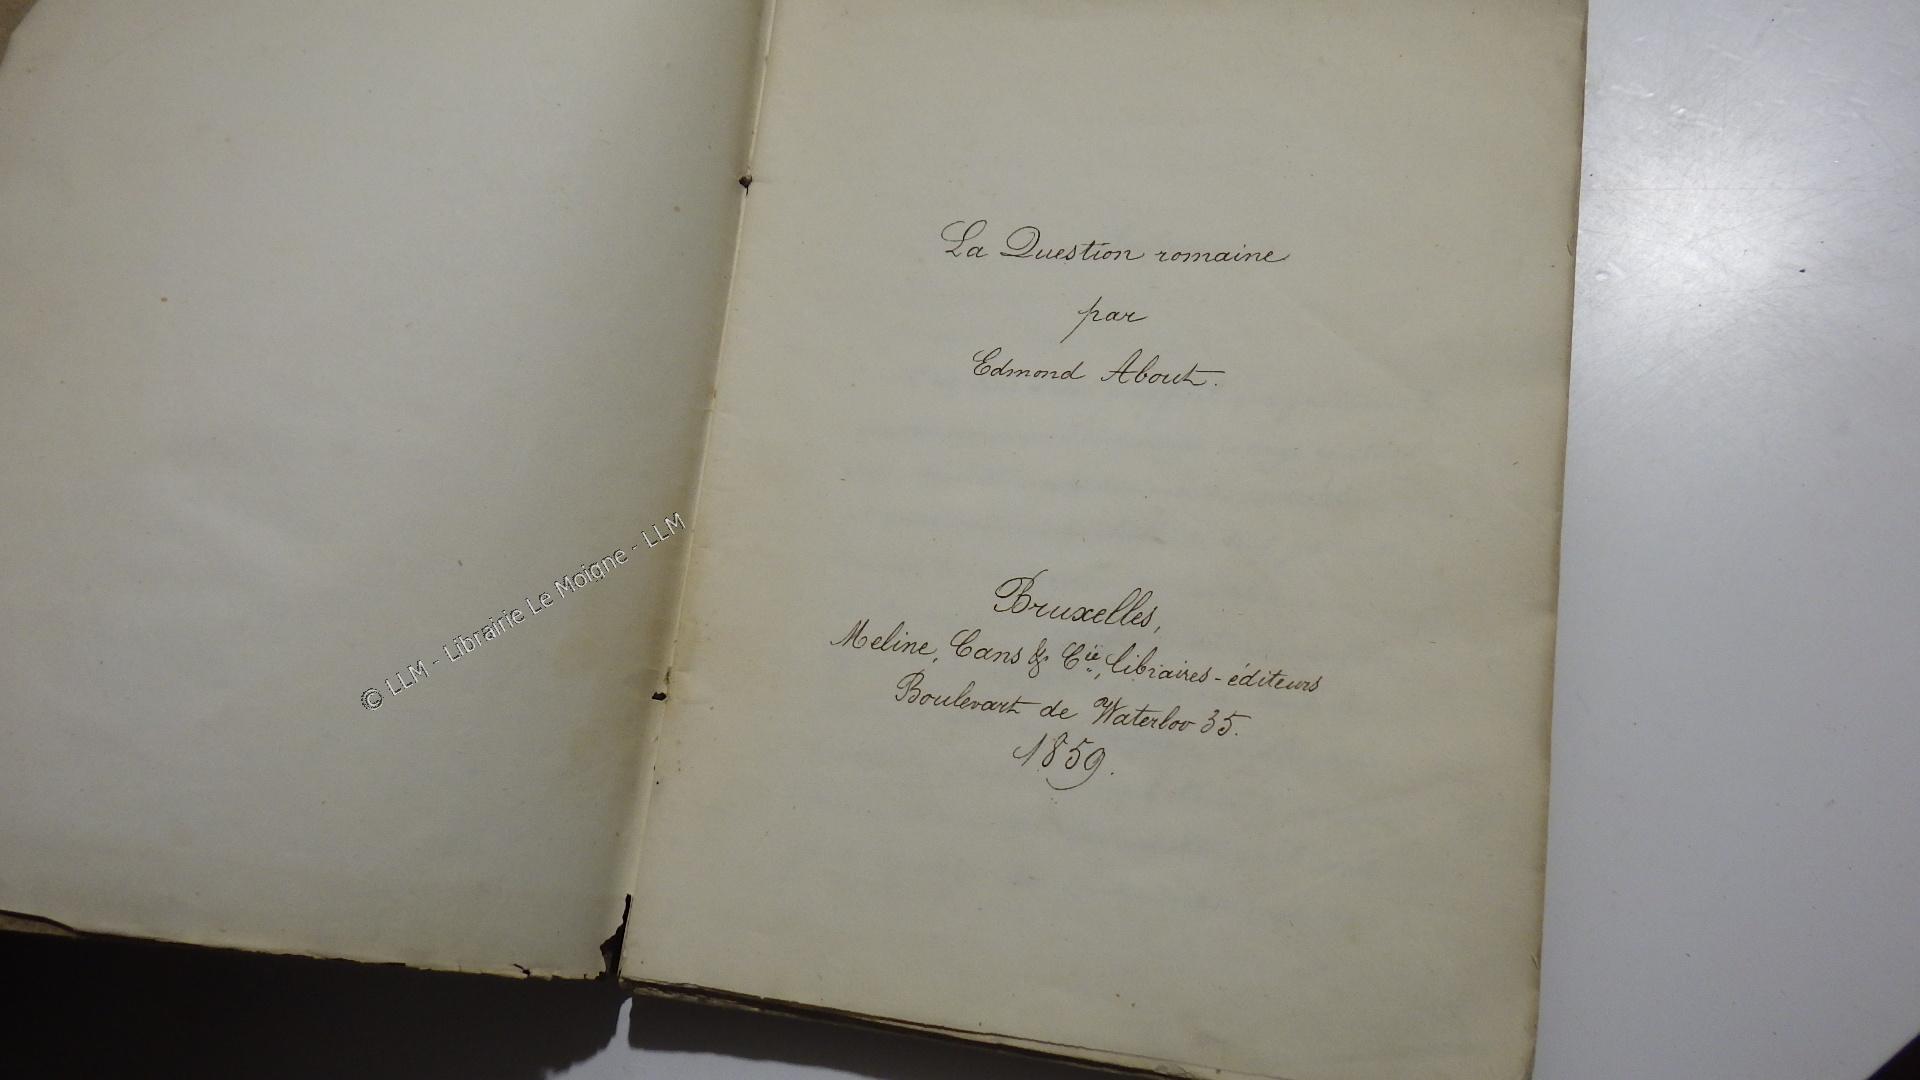 La Question romaine
par
Edmond About.
Bruxelles,
Meline, Cans & Cie, libraires-éditeurs
Boulevart de Waterloo 35.
1859.
© LLM - Librairie Le Moigne - LLM